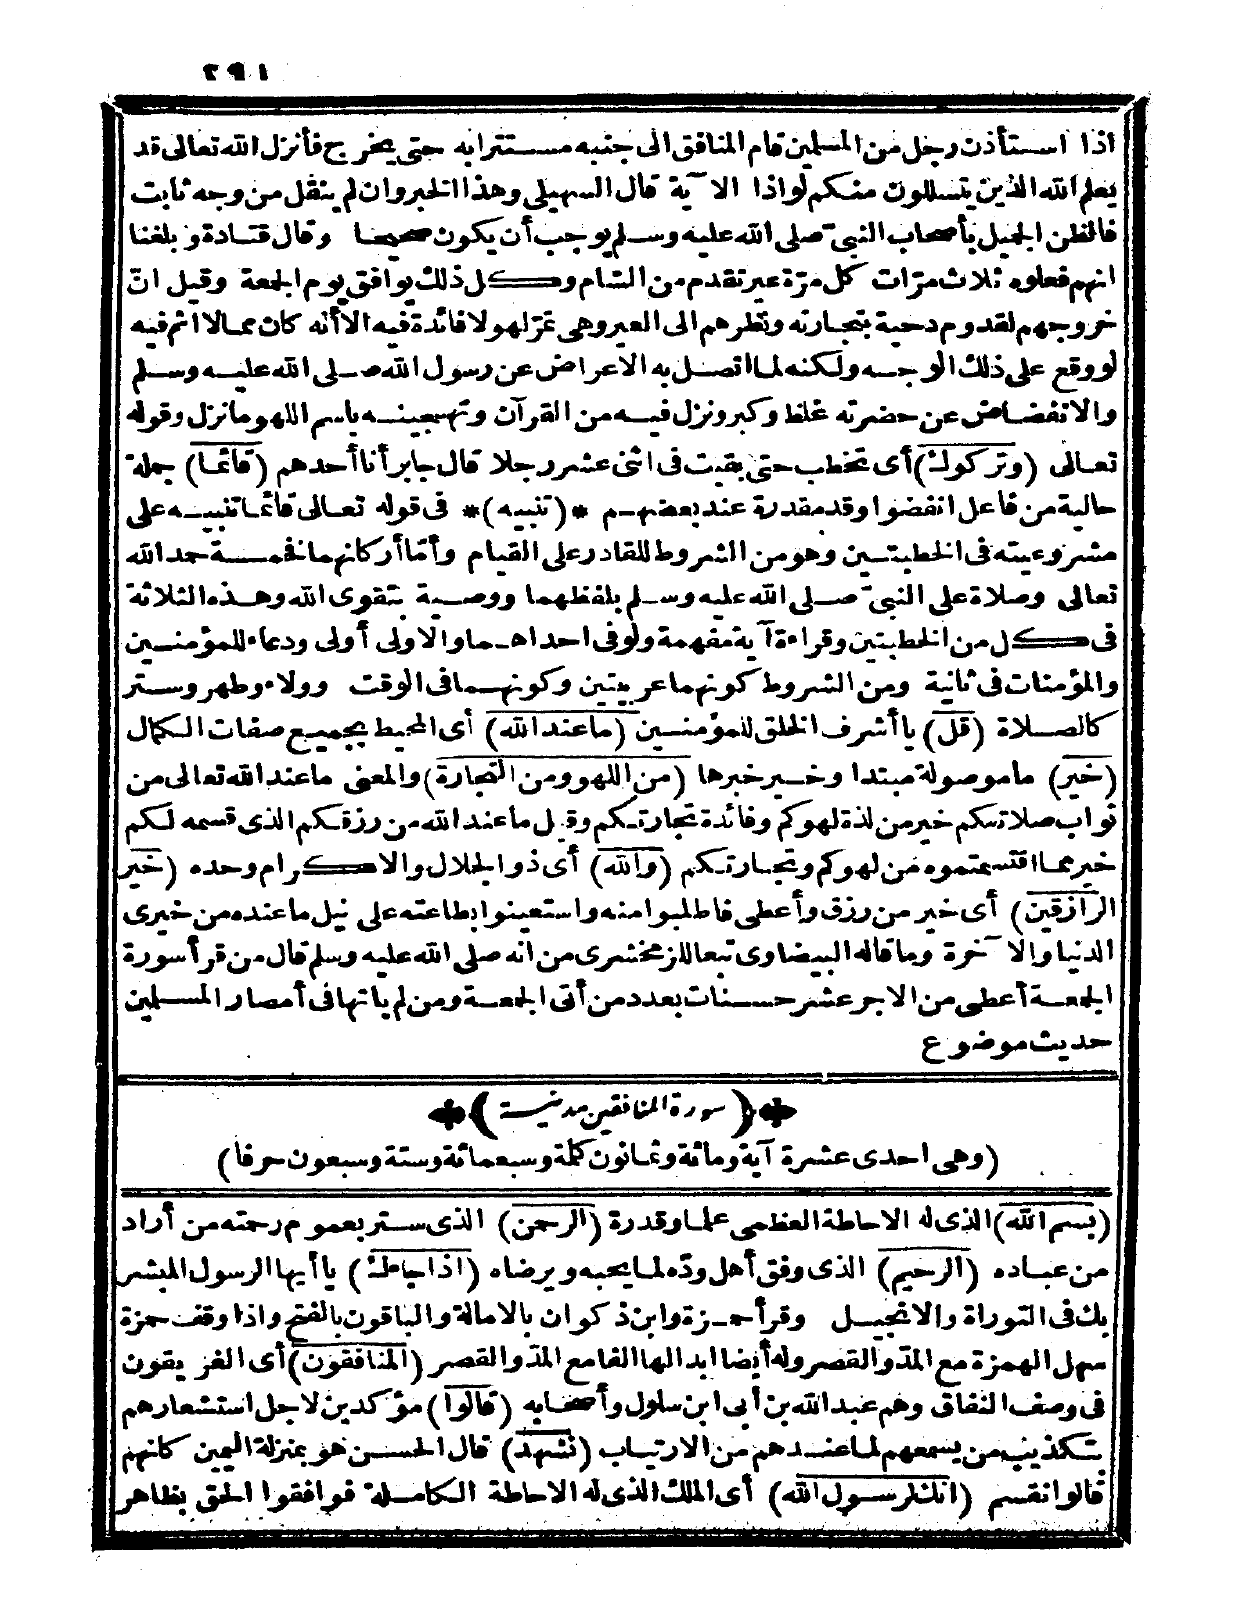 ٢٩١
اذا استأذن رجل من المسلمين قام المنافق الى جنبه مستترا به حتى يخرج فأنزل الله تعالى قد
يعلم الله الذين يتسللون منكم لواذا الآية قال السهيلى وهذا الخبر وان لم ينقل من وجه ثابت
فالظن الجميل بأصحاب النبىّ صلى الله عليه وسلم يوجب أن يكون صحيحا وقال قتادة وبلغنا
انهم فعلوه ثلاث مرّات كل مرّة عير تقدم من الشام وكل ذلك يوافق يوم الجمعة وقيل انّ
خروجهم لقدوم دحية بتجارته ونظرهم الى العير وهى تمرّ لهو لا فائدة فيه الا أنه كان مما لا اثم فيه
لو وقع على ذلك الوجه ولكنه لما اتصل به الاعراض عن رسول الله صلى الله عليه وسلم
والانفضاض عن حضرته غلظ وكبر ونزل فيه من القرآن وتهجينه باسم اللهو ما نزل وقوله
تعالى (وتركوك) أى تخطب حتى بقيت فى اثنى عشر رجلا قال جابر أنا أحدهم (قائما) جملة
حالية من فاعل انفضوا وقد مقدرة عند بعضهم *(تنبيه)* فى قوله تعالى قائما تنبيه على
مشروعيته فى الخطبتين وهو من الشروط للقادر على القيام وأمّا أركانهما فخمسة حمد الله
تعالى وصلاة على النبىّ صلى الله عليه وسلم بلفظهما ووصية بتقوى الله وهذه الثلاثة
فى كل من الخطبتين وقراءة آية مفهمة ولو فى احداهما والاولى أولى ودعاء للمؤمنين
والمؤمنات فى ثانية ومن الشروط كونهما عربيتين وكونهما فى الوقت وولاء وطهر وستر
كالصلاة (قل) يا أشرف الخلق للمؤمنين (ما عند الله) أى المحيط بجميع صفات الكمال
(خير) ما موصولة مبتدا وخير خبرها (من اللهو ومن التجارة) والمعنى ما عند الله تعالى من
ثواب صلاتكم خير من لذة لهوكم وفائدة تجارتكم وقيل ما عند الله من رزقكم الذى قسمه لكم
خير مما اقتسمتموه من لهوكم وتجارتكم (والله) أى ذو الجلال والاكرام وحده (خير
الرازقين) أى خير من رزق وأعطى فاطلبوا منه واستعينوا بطاعته على نيل ما عنده من خيرى
الدنيا والآخرة وما قاله البيضاوى تبعا للزمخشرى من انه صلى الله عليه وسلم قال من قرأ سورة
الجمعة أعطى من الاجر عشر حسنات بعدد من أتى الجمعة ومن لم ياتها فى أمصار المسلمين
حديث موضوع
(سورة المنافقين مدنية)
(وهى احدى عشرة آية ومائة وثمانون كلمة وسبعمائة وستة وسبعون حرفا)
(بسم الله) الذى له الاحاطة العظمى علما وقدرة (الرحمن) الذى ستر بعموم رحمته من أراد
من عباده (الرحيم) الذى وفق أهل ودّه لما يحبه ويرضاه (اذا جاءك) يا أيها الرسول المبشر
بك فى التوراة والانجيل وقرأ حمزة وابن ذكوان بالامالة والباقون بالفتح واذا وقف حمزة
سهل الهمزة مع المدّ والقصر وله أيضا ابدالها الفا مع المدّ والقصر (المنافقون) أى الغريقون
فى وصف النفاق وهم عبد الله بن أبى ابن سلول وأصحابه (قالوا) مؤكدين لاجل استشعارهم
بتكذيب من يسمعهم لما عندهم من الارتياب (نشهد) قال الحسن هو بمنزلة اليمين كانهم
قالوا نقسم (انك لرسول الله) أى الملك الذى له الاحاطة الكاملة فوافقوا الحق بظاهر